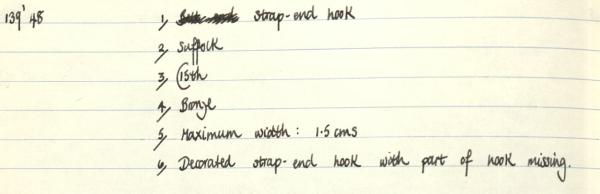 139' 48 1, strap-end hook
2, Suffolk
3, C15th
4, Bronze
5, Maximum width: 1.5 cms
6, Decorated strap-end hook with part of hook missing.